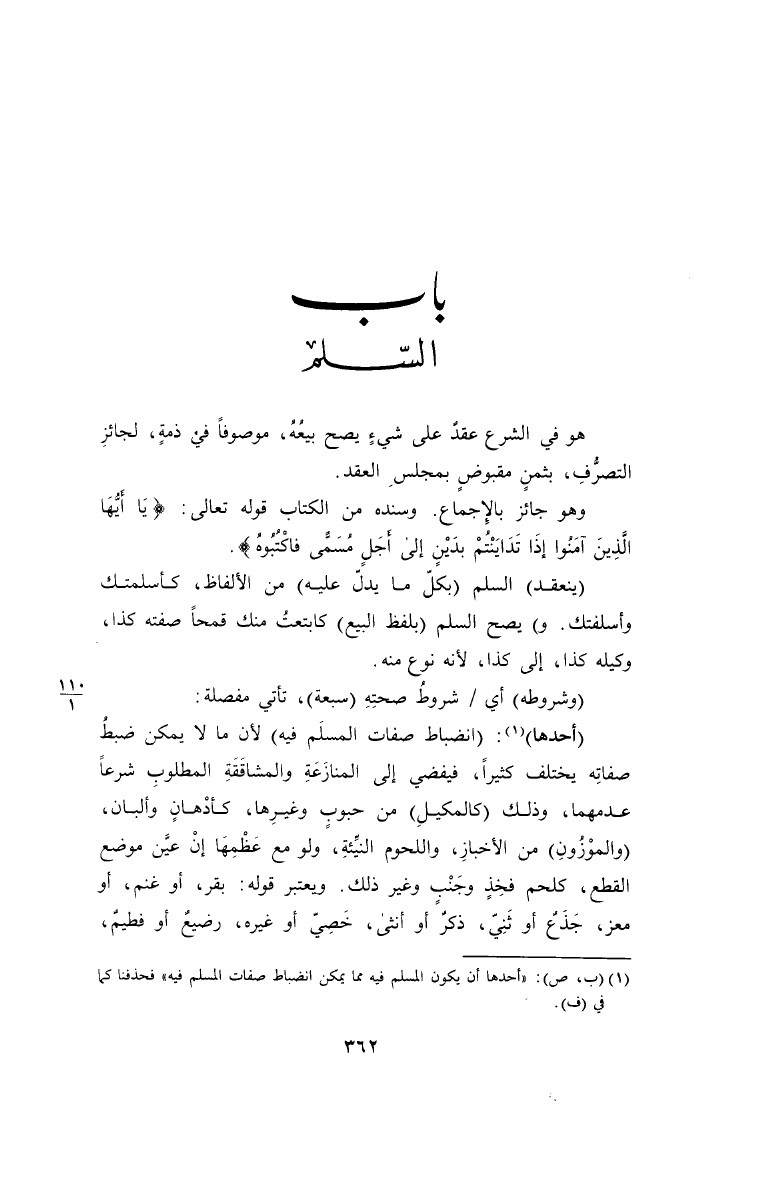 باب
السّلم
هو في الشرع عقدٌ على شيءٍ يصح بيعُهُ، موصوفاً في ذمةٍ، لجائزِ
التصرُّفِ، بثمنٍ مقبوضٍ بمجلس العقد.
وهو جائز بالإجماع. وسنده من الكتاب قوله تعالى: ﴿يَا أَيُّهَا
الَّذِينَ آمَنُوا إذَا تَدَايَنْتُمْ بِدَيْنٍ إلىٰ أَجَلٍ مُسَمًّى فاكْتُبُوهُ﴾.
(ينعقد) السلم (بكلّ ما يدلّ عليه) من الألفاظ، كأسلمتك
وأسلفتك. و) يصح السلم (بلفظ البيع) كابتعتُ منك قمحاً صفته كذا،
وكيله كذا، إلى كذا، لأنه نوع منه.
(وشروطه) أي / شروطُ صحتِهِ (سبعة)، تأتي مفصلة:
١١٠
١
(أحدها)(١): (انضباط صفات المسلَم فيه) لأن ما لا يمكن ضبطُ
صفاتِه يختلف كثيراً، فيفضي إلى المنازَعَةِ والمشاقَقَةِ المطلوبِ شرعاً
عدمهما، وذلك (كالمكيلِ) من حبوبٍ وغيرِها، كأدْهانٍ وألبان،
(والموْزُونِ) من الأخبازِ، واللحومِ النيِّئةِ، ولو مع عَظْمِهَا إنْ عيَّن موضع
القطع، كلحم فخِذٍ وجَنْبٍ وغير ذلك. ويعتبر قوله: بقر، أو غنم، أو
معز، جَذَعٌ أو ثَنِيّ، ذكرٌ أو أنثىٰ، خَصِيّ أو غيره، رضيعٌ أو فطيمٌ،
(١) (ب، ص): «أحدها أن يكون المسلم فيه مما يمكن انضباط صفات المسلم فيه» فحذفنا كما
في (ف).
٣٦٢